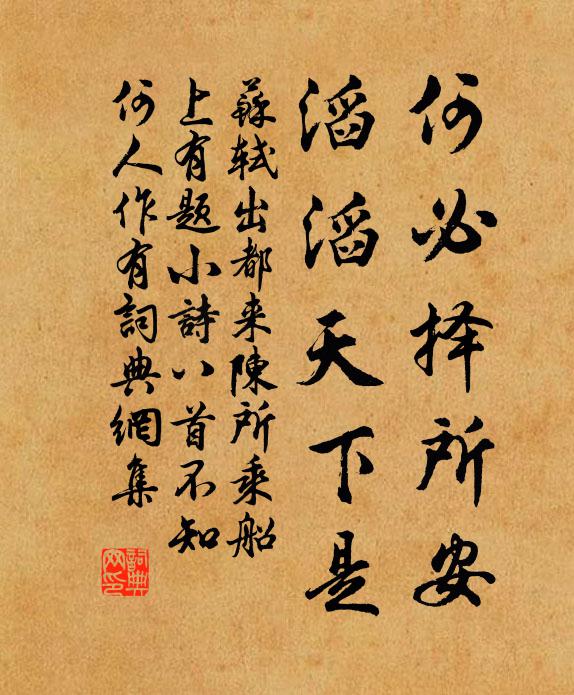 何必择所安
滔滔天下是
蘇軾出都来陳所乘船
上有题小詩八首不知
何人作有詞典網集
詞典网印